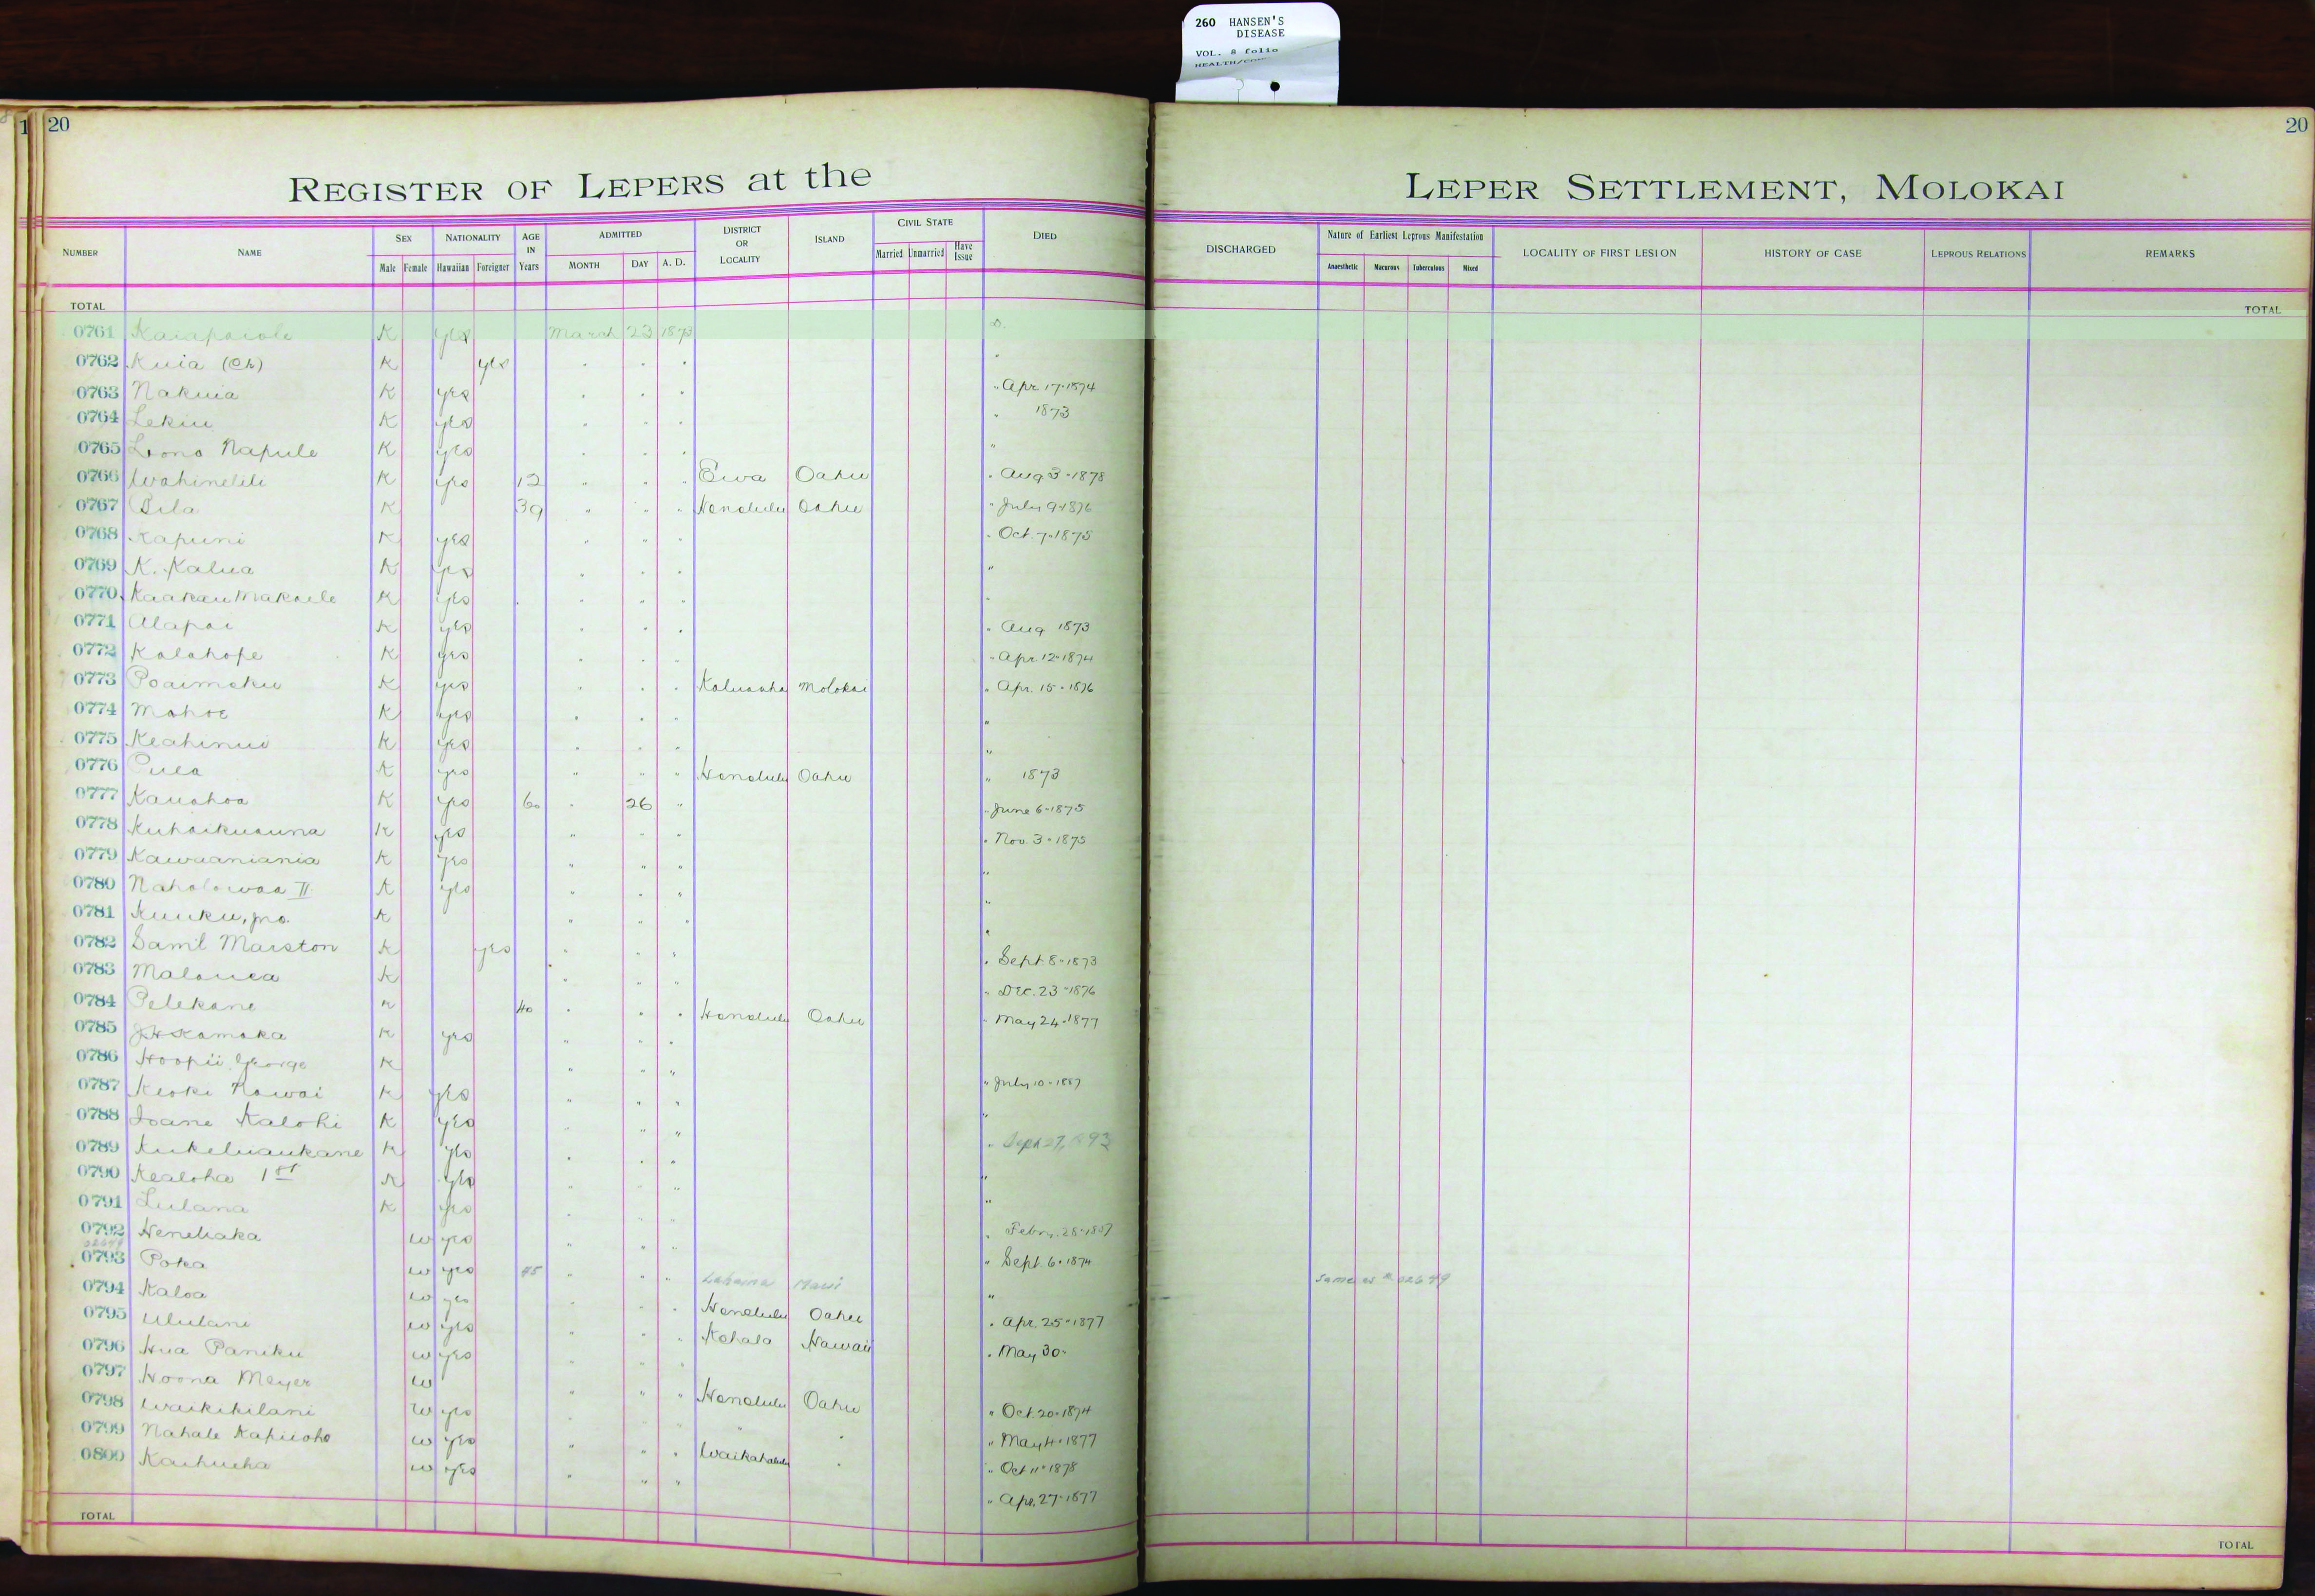 260 HANSEN'S
DISEASE
VOL. 8 folio
HEALTH/
1 20
20
REGISTER OF LEPERS at the LEPER SETTLEMENT, MOLOKAI
NUMBER NAME SEX NATIONALITY AGE IN Years ADMITTED DISTRICT OR LOCALITY ISLAND CIVIL STATE DIED DISCHARGED Nature of Earliest Leprous Manifestation LOCALITY OF FIRST LESION HISTORY OF CASE LEPROUS RELATIONS REMARKS
Male Female Hawaiian Foreigner MONTH DAY A. D. Married Unmarried Have Issue Anaesthetic Macurous Tuberculous Mixed
TOTAL TOTAL
0761 Kaiapaiole K yes March 23 1873 D.
0762 Kuia (Ch) K yes " " " "
0763 Nakuia K yes " " " " Apr. 17-1874
0764 Lekiu K yes " " " " 1873
0765 Lono Napule K yes " " " "
0766 Wahinelili K yes 12 " " " Ewa Oahu " Aug 3-1878
0767 Pila K 39 " " " Honolulu Oahu " July 9-1876
0768 Kapuni K yes " " " " Oct. 7-1875
0769 K. Kalua K yes " " " "
0770 Kaakau Makaele K yes " " " "
0771 Alapai K yes " " " " Aug 1873
0772 Kalahope K yes " " " " Apr. 12-1874
0773 Poaimoku K yes " " " Kaluaaha Molokai " Apr. 15-1876
0774 Mahoe K yes " " " "
0775 Keahinui K yes " " " "
0776 Pulea K yes " " " Honolulu Oahu " 1873
0777 Kauahoa K yes 60 " 26 " " June 6-1875
0778 Kuhaikuauna K yes " " " " Nov. 3-1875
0779 Kawaaniania K yes " " " "
0780 Naholowaa II K yes " " " "
0781 Kuuku, jno. K " " " "
0782 Saml Marston K yes " " " " Sept 8-1873
0783 Malauea K " " " " Dec. 23-1876
0784 Pelekane K 40 " " " Honolulu Oahu " May 24-1877
0785 J.H. Kamaka K yes " " "
0786 Hoopii George K " " " " July 10-1887
0787 Keoki Nawai K yes " " " "
0788 Ioane Kalohi K yes " " " " Sept 27, 1893
0789 Kukeluaukane K yes " " " "
0790 Kealoha 1st K yes " " " "
0791 Lulana K yes " " " " Febr. 28-1887
0792 Henehaka W yes " " " " Sept. 6-1874
02649
0793 Poka W yes 45 " " " Lahaina Maui " Same as # 02649
0794 Kaloa W yes " " " Honolulu Oahu " Apr. 25-1877
0795 Ululani W yes " " " Kohala Hawaii " May 30-
0796 Hua Paniku W yes " " "
0797 Hoona Meyer W " " " Honolulu Oahu " Oct. 20-1874
0798 Waikikilani W yes " " " " " " May 4-1877
0799 Nahale Kapiioho W yes " " " Waikahalulu " " Oct 11-1878
0800 Kaihueha W yes " " " " Apr. 27-1877
TOTAL TOTAL